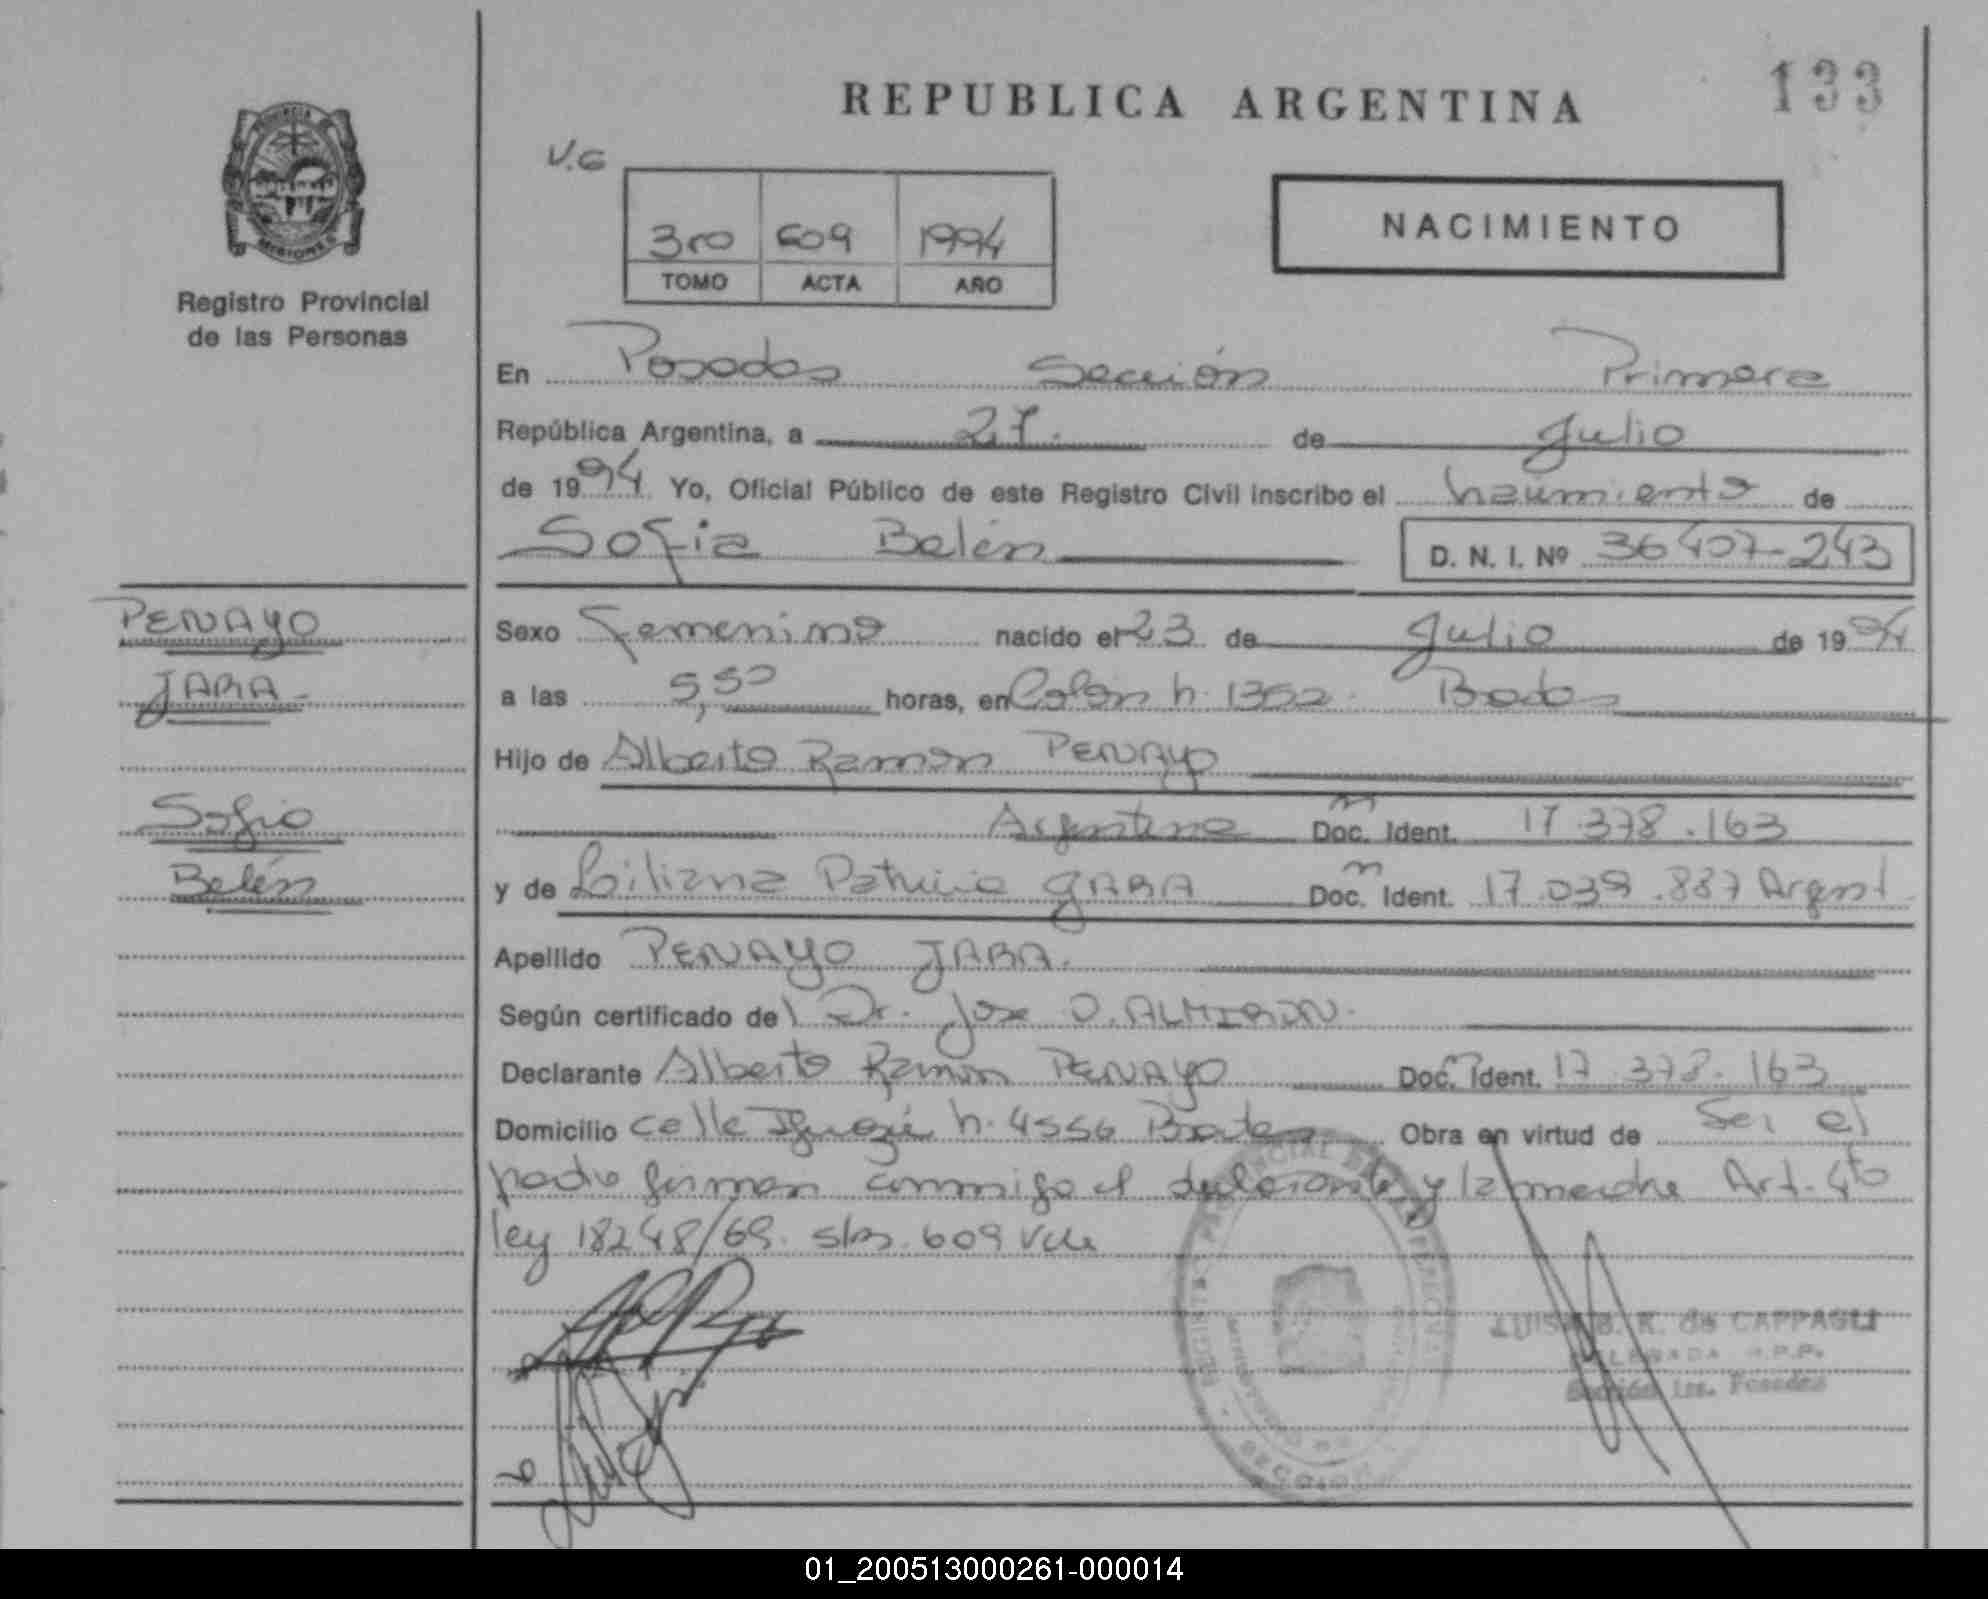 133
REPUBLICA ARGENTINA
V.G
3ro 609 1994
TOMO ACTA AÑO
NACIMIENTO
MISIONES
Registro Provincial
de las Personas
En Posadas Sección Primera
República Argentina, a 27. de Julio
de 1994 Yo, Oficial Público de este Registro Civil inscribo el nacimiento de
Sofia Belén D. N. I. Nº 36407-243
PENAYO
JARA
Sofia
Belén
Sexo Femenino nacido el 23 de Julio de 1994
a las 5,50 horas, en Colón n. 1352. Posadas
Hijo de Alberto Ramon PENAYO
Argentino Doc. Ident. 17.378.163
y de Liliana Patricia JARA Doc. Ident. 17.039.887 Argent.
Apellido PENAYO JARA.
Según certificado del Dr. Jose O. ALMIRON.
Declarante Alberto Ramon PENAYO Doc. Ident. 17.378.163
Domicilio calle Iguazú n. 4556 Posadas Obra en virtud de Ser el
padre firman conmigo el declarante y la madre Art. 4to
ley 18248/69. s/b. 609 vale
LUISA B. K. de CAPPAGLI
DELEGADA R.P.P.
Sección 1ra. Posadas
01_200513000261-000014